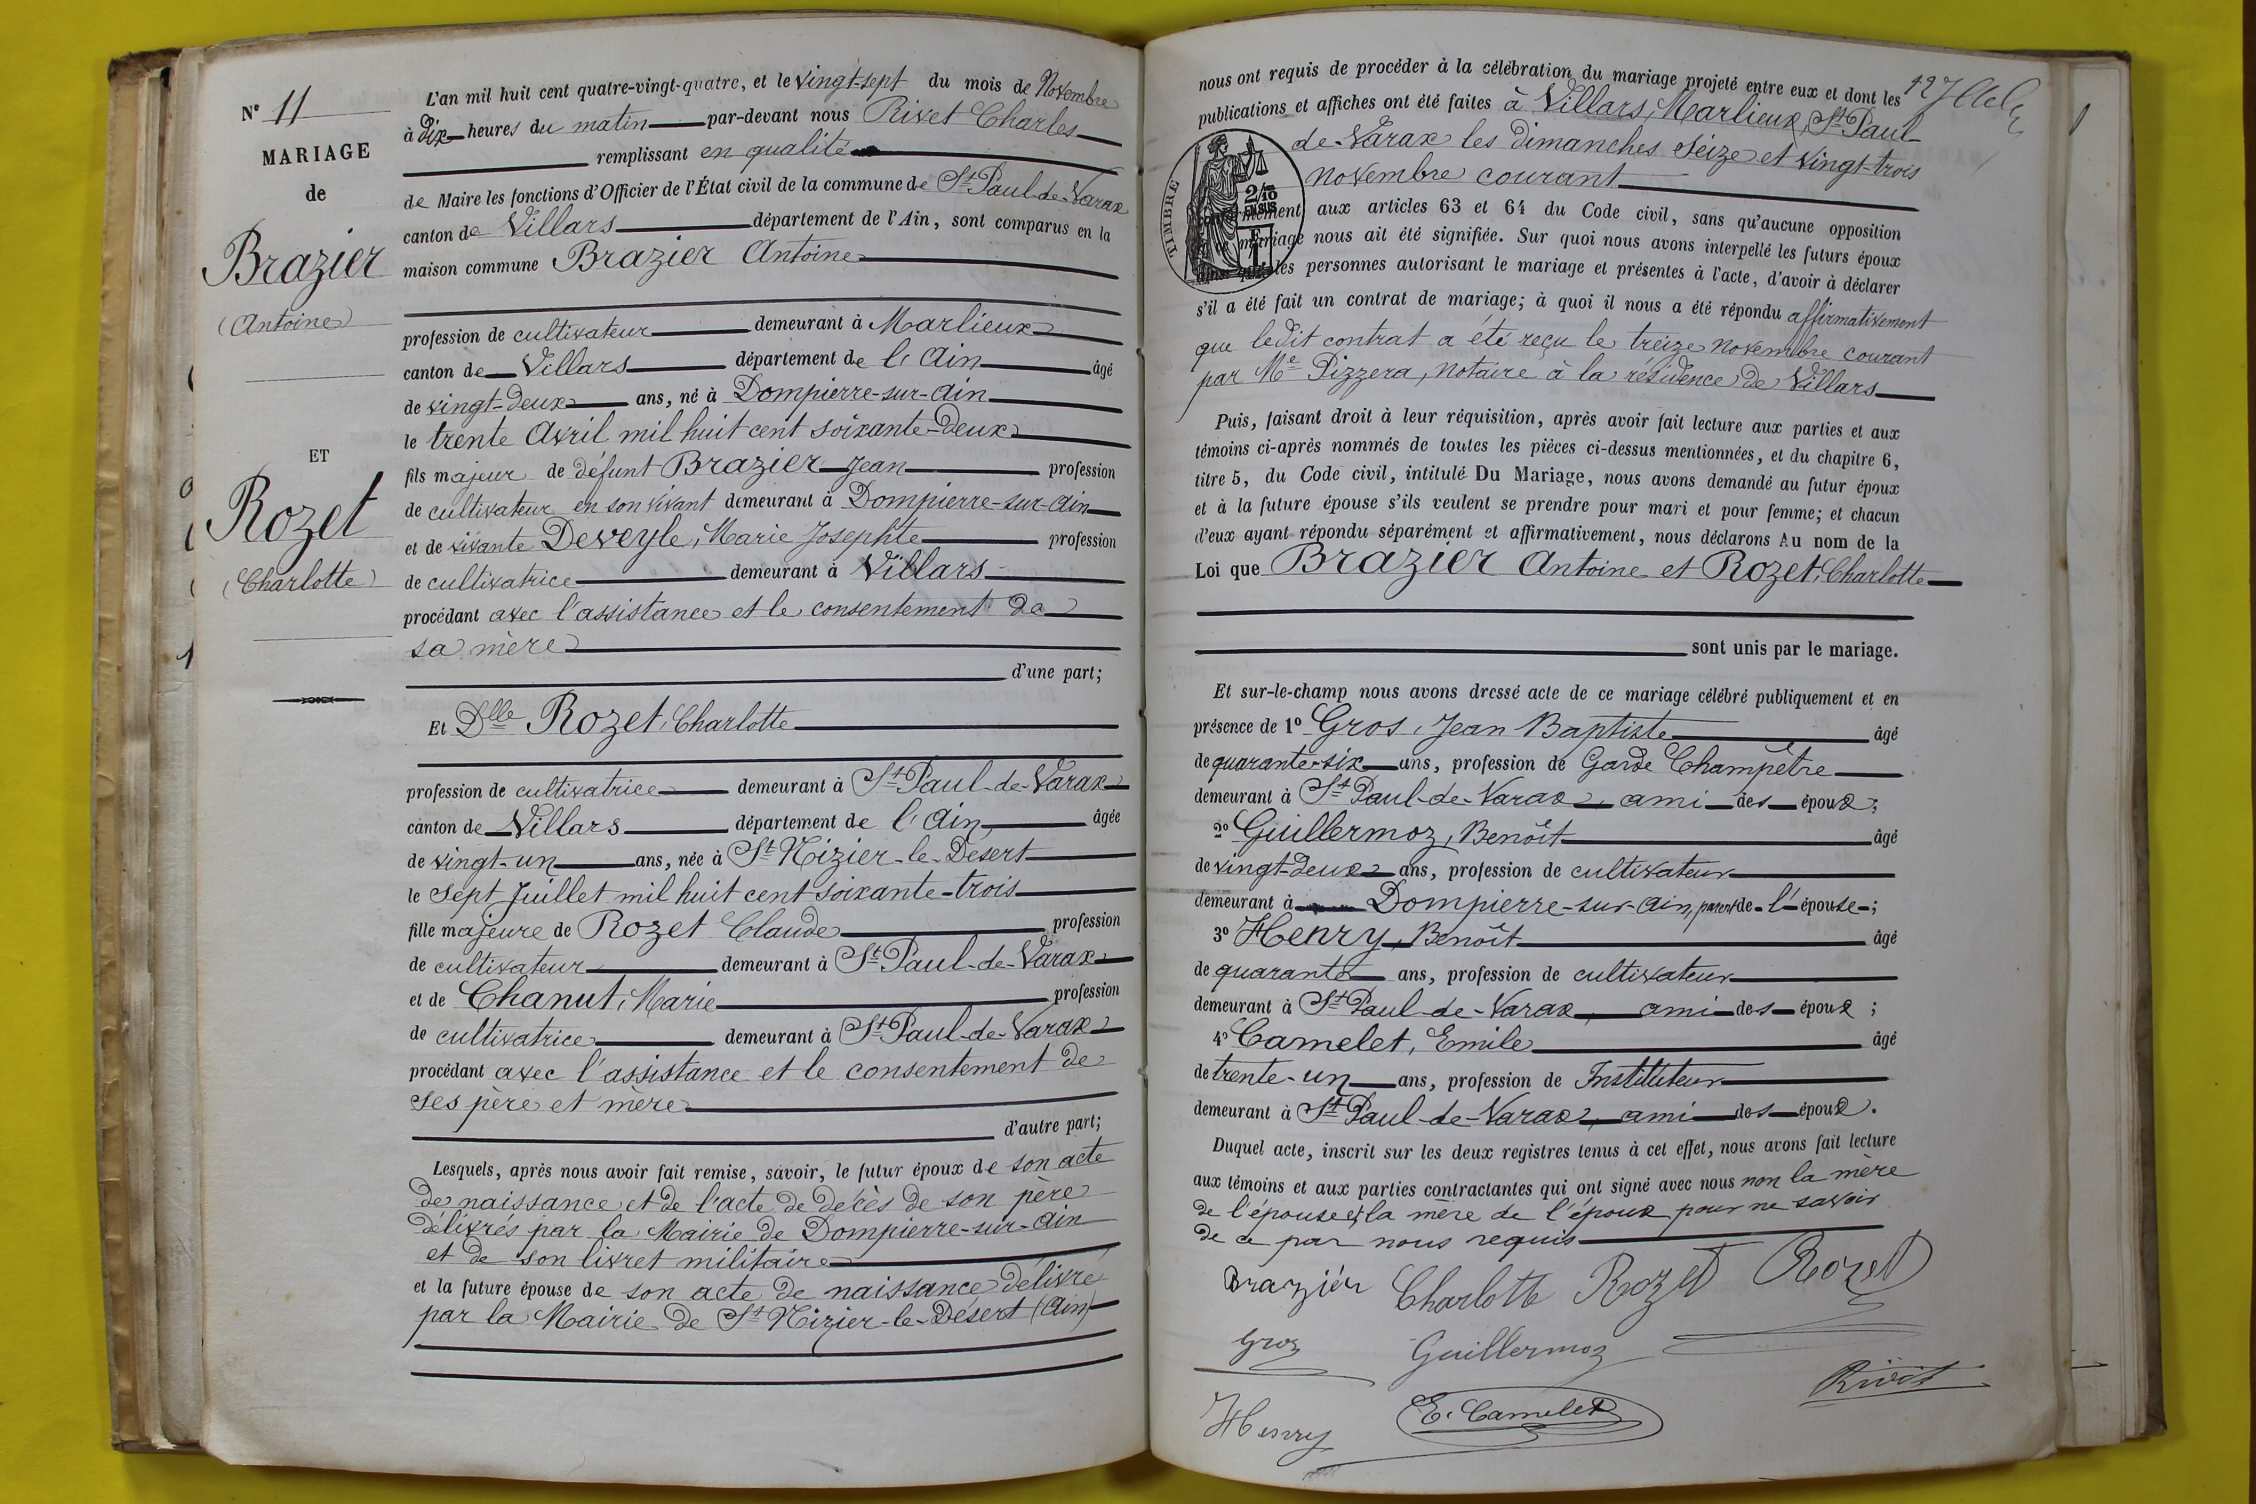 N° 11
MARIAGE
de
Brazier
(Antoine)
ET
Rozet
(Charlotte)
L'an mil huit cent quatre-vingt-quatre, et le vingt-sept du mois de Novembre
à dix heures du matin par-devant nous Rivet Charles
remplissant en qualité
de Maire les fonctions d'Officier de l'État civil de la commune de St Paul-de-Varax
canton de Villars département de l'Ain, sont comparus en la
maison commune Brazier Antoine
profession de cultivateur demeurant à Marlieux
canton de Villars département de l'Ain âgé
de vingt-deux ans, né à Dompierre-sur-Ain
le trente Avril mil huit cent soixante-deux
fils majeur de défunt Brazier Jean profession
de cultivateur en son vivant demeurant à Dompierre-sur-Ain
et de vivante Deveyle, Marie Josephte profession
de cultivatrice demeurant à Villars
procédant avec l'assistance et le consentement de
sa mère
d'une part;
Et Dlle Rozet, Charlotte
profession de cultivatrice demeurant à St Paul-de-Varax
canton de Villars département de l'Ain, âgée
de vingt-un ans, née à St Nizier-le-Desert
le sept Juillet mil huit cent soixante-trois
fille majeure de Rozet Claude profession
de cultivateur demeurant à St Paul-de-Varax
et de Chanut, Marie profession
de cultivatrice demeurant à St Paul-de-Varax
procédant avec l'assistance et le consentement de
ses père et mère
d'autre part;
Lesquels, après nous avoir fait remise, savoir, le futur époux de son acte
de naissance et de l'acte de décès de son père
délivrés par la Mairie de Dompierre-sur-Ain
et de son livret militaire
et la future épouse de son acte de naissance délivré
par la Mairie de St Nizier-le-Désert (Ain)
nous ont requis de procéder à la célébration du mariage projeté entre eux et dont les
publications et affiches ont été faites à Villars, Marlieux, St Paul-
de-Varax les dimanches seize et vingt-trois
novembre courant
TIMBRE
2/10
EN SUS
1 F
aux articles 63 et 64 du Code civil, sans qu'aucune opposition
mariage nous ait été signifiée. Sur quoi nous avons interpellé les futurs époux
les personnes autorisant le mariage et présentes à l'acte, d'avoir à déclarer
s'il a été fait un contrat de mariage; à quoi il nous a été répondu affirmativement
que ledit contrat a été reçu le treize novembre courant
par Me Pizzera, notaire à la résidence de Villars
Puis, faisant droit à leur réquisition, après avoir fait lecture aux parties et aux
témoins ci-après nommés de toutes les pièces ci-dessus mentionnées, et du chapitre 6,
titre 5, du Code civil, intitulé Du Mariage, nous avons demandé au futur époux
et à la future épouse s'ils veulent se prendre pour mari et pour femme; et chacun
d'eux ayant répondu séparément et affirmativement, nous déclarons Au nom de la
Loi que Brazier Antoine et Rozet, Charlotte
sont unis par le mariage.
Et sur-le-champ nous avons dressé acte de ce mariage célébré publiquement et en
présence de 1° Gros, Jean Baptiste âgé
de quarante-six ans, profession de Garde Champêtre
demeurant à St Paul-de-Varax, ami des époux;
2° Guillermoz, Benoît âgé
de vingt-deux ans, profession de cultivateur
demeurant à Dompierre-sur-Ain, parent de l'épouse;
3° Henry, Benoît âgé
de quarante ans, profession de cultivateur
demeurant à St Paul-de-Varax, ami des époux;
4° Camelet, Emile âgé
de trente-un ans, profession de Instituteur
demeurant à St Paul-de-Varax, ami des époux.
Duquel acte, inscrit sur les deux registres tenus à cet effet, nous avons fait lecture
aux témoins et aux parties contractantes qui ont signé avec nous non la mère
de l'épouse et la mère de l'époux pour ne savoir
de ce par nous requis
Brazier Charlotte Rozet Rozet
Gros Guillermoz
Rivet
Henry E. Camelet